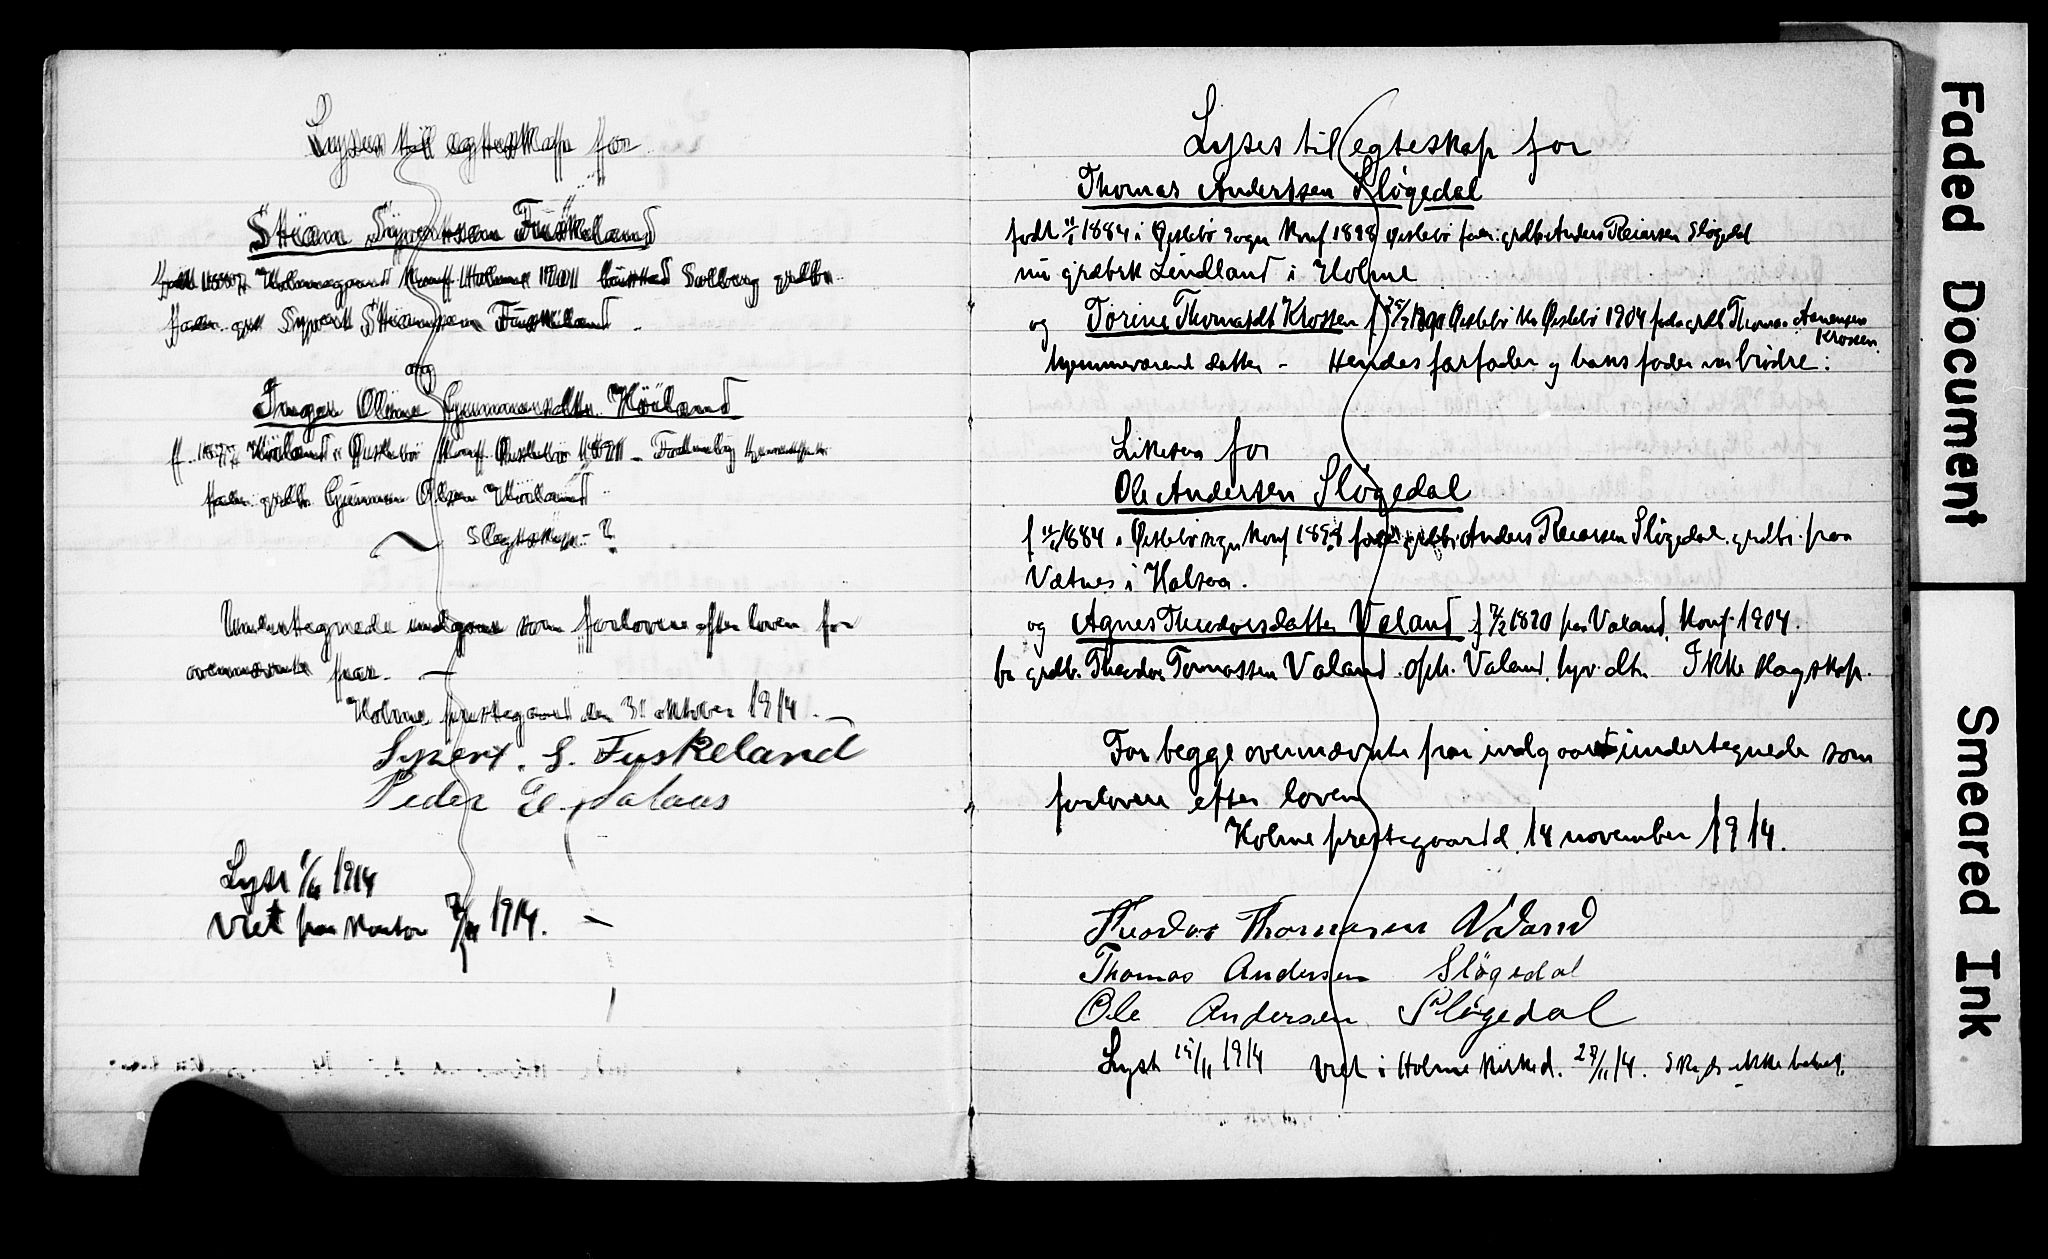 Lyses til egteskap for
Stian Syvertsen Fuskeland
Holmegaard Konf. Holme 1901 Solberg grdbr.
Fader: grdbr Syvert Stiansen Fuskeland
og
Inger Oline Gunnarsdtr. Höiland
f. 1877 Höiland i Öislebö Konf. Öislebö 1891 -
Fader: grdbr. Gunnar Olsen Höiland
Slegtskap - ?
Undertegnede indgaar som forlovere efter loven for
ovennævnte par. -
Holme prestegaard den 31 oktober 1914. -
Syvert. S. Fuskeland
Peder
Lyst 1/11 1914
Viet paa kontor 7/11 1914. -
Lyses til egteskap for
Thomas Anderssen Slögedal
født 11/1 1884 i Øislebö sogn Konf 1898 Øislebö fader: grdbr Anders Reiersen Slögedal
nu grdbrk Lindland i Holme
og Torine Thomasdt Krossen f Øislebö k. Øislebö 1904 fader grdb Thomas Asmensen
Krossen.
hjemmeværende datter - Hendes farfader og hans fader var brödre.
Likesaa for
Ole Andersen Slögedal
f 11/1 1884 i Øislebö sogn Konf 1898 fader grdbr Anders Reiersen Slögedal. grdbr. paa
Vatnes i Halsaa.
og Agnes Theodorsdatter Valand f 7/2 1890 paa Valand, Konf. 1904.
fa grdbr. Theodor Tomassen Valand. oph. Valand, hjv. dtr. Ikke slagskap.
For begge ovennævnte par indgaar undertegnede som
forlovere efter loven
Holme prestegaard d. 14 november 1914.
Theodor Thomasen Valand
Thomas Andersen Slögedal
Ole Andersen Slögedal
Lyst 15/11 1914 Viet i Holme kirke d. 27/11 14. Skyds ikke betalt.
Faded Document
Smeared Ink